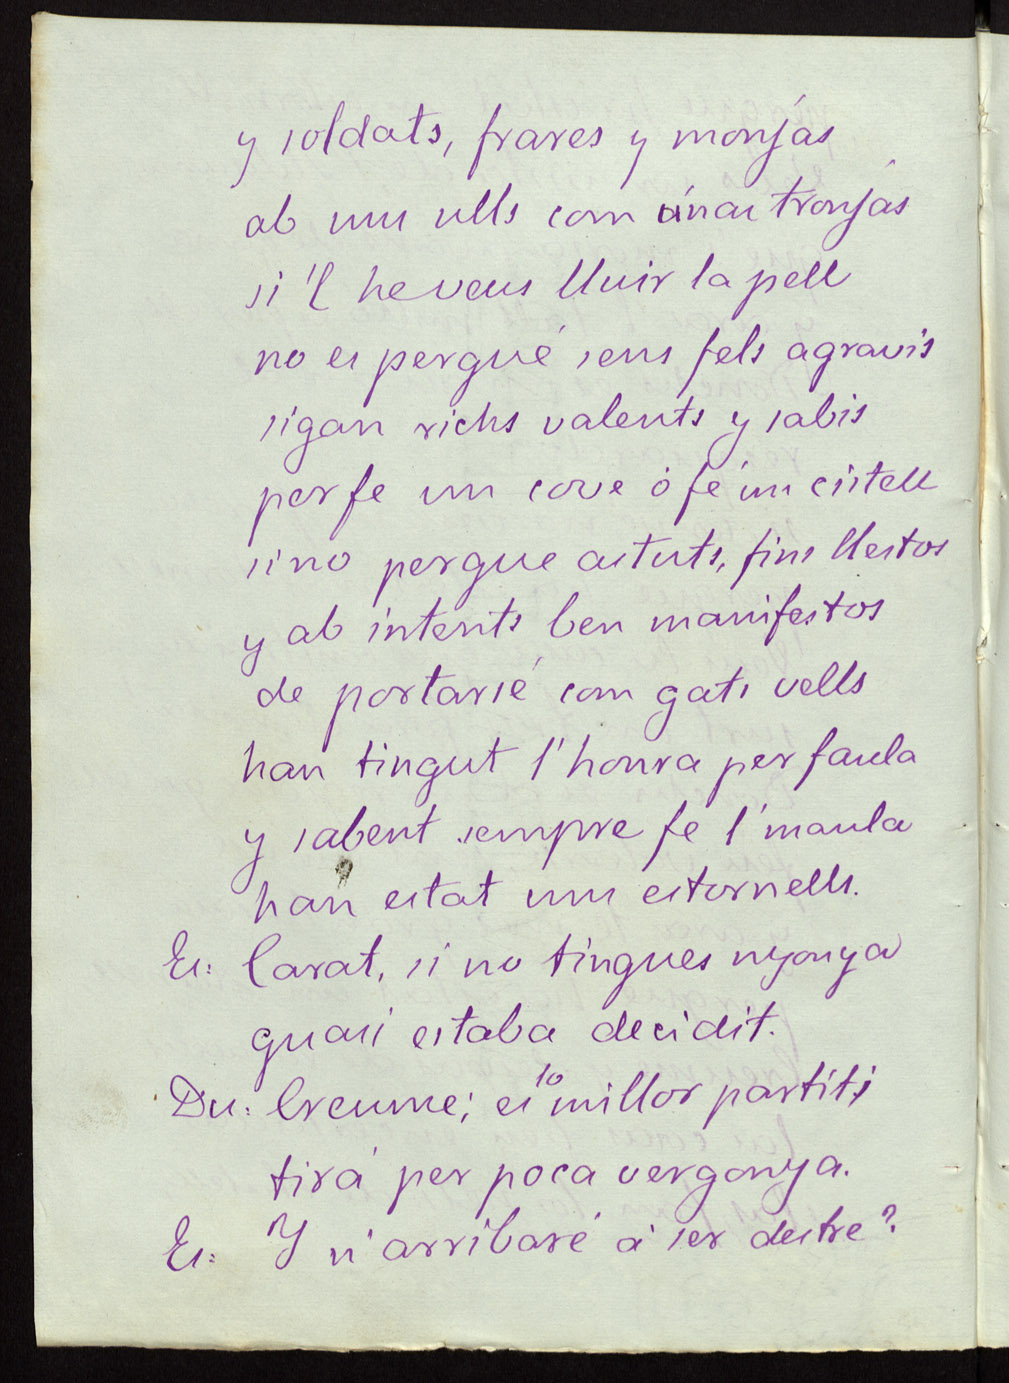 y soldats, frares y monjás
ab uns ulls com únas tronjás
si 'l he veus lluir la pell
no es pergué sens fels agravis
sigan richs valents y sabis
per fe un cove ó fé un cistell
sino pergue astuts, fins llestos
y ab intents ben manifestos
de portarsé com gats vells
han tingut l'honra per faula
y sabent sempre fe l'maula
han estat uns estornells.
Es: Carat, si no tingues nyonya
quasi estaba decidit.
Du: Creume; es lo millor partit;
tirá per poca vergonya.
Es: Y n'arribaré á ser destre?